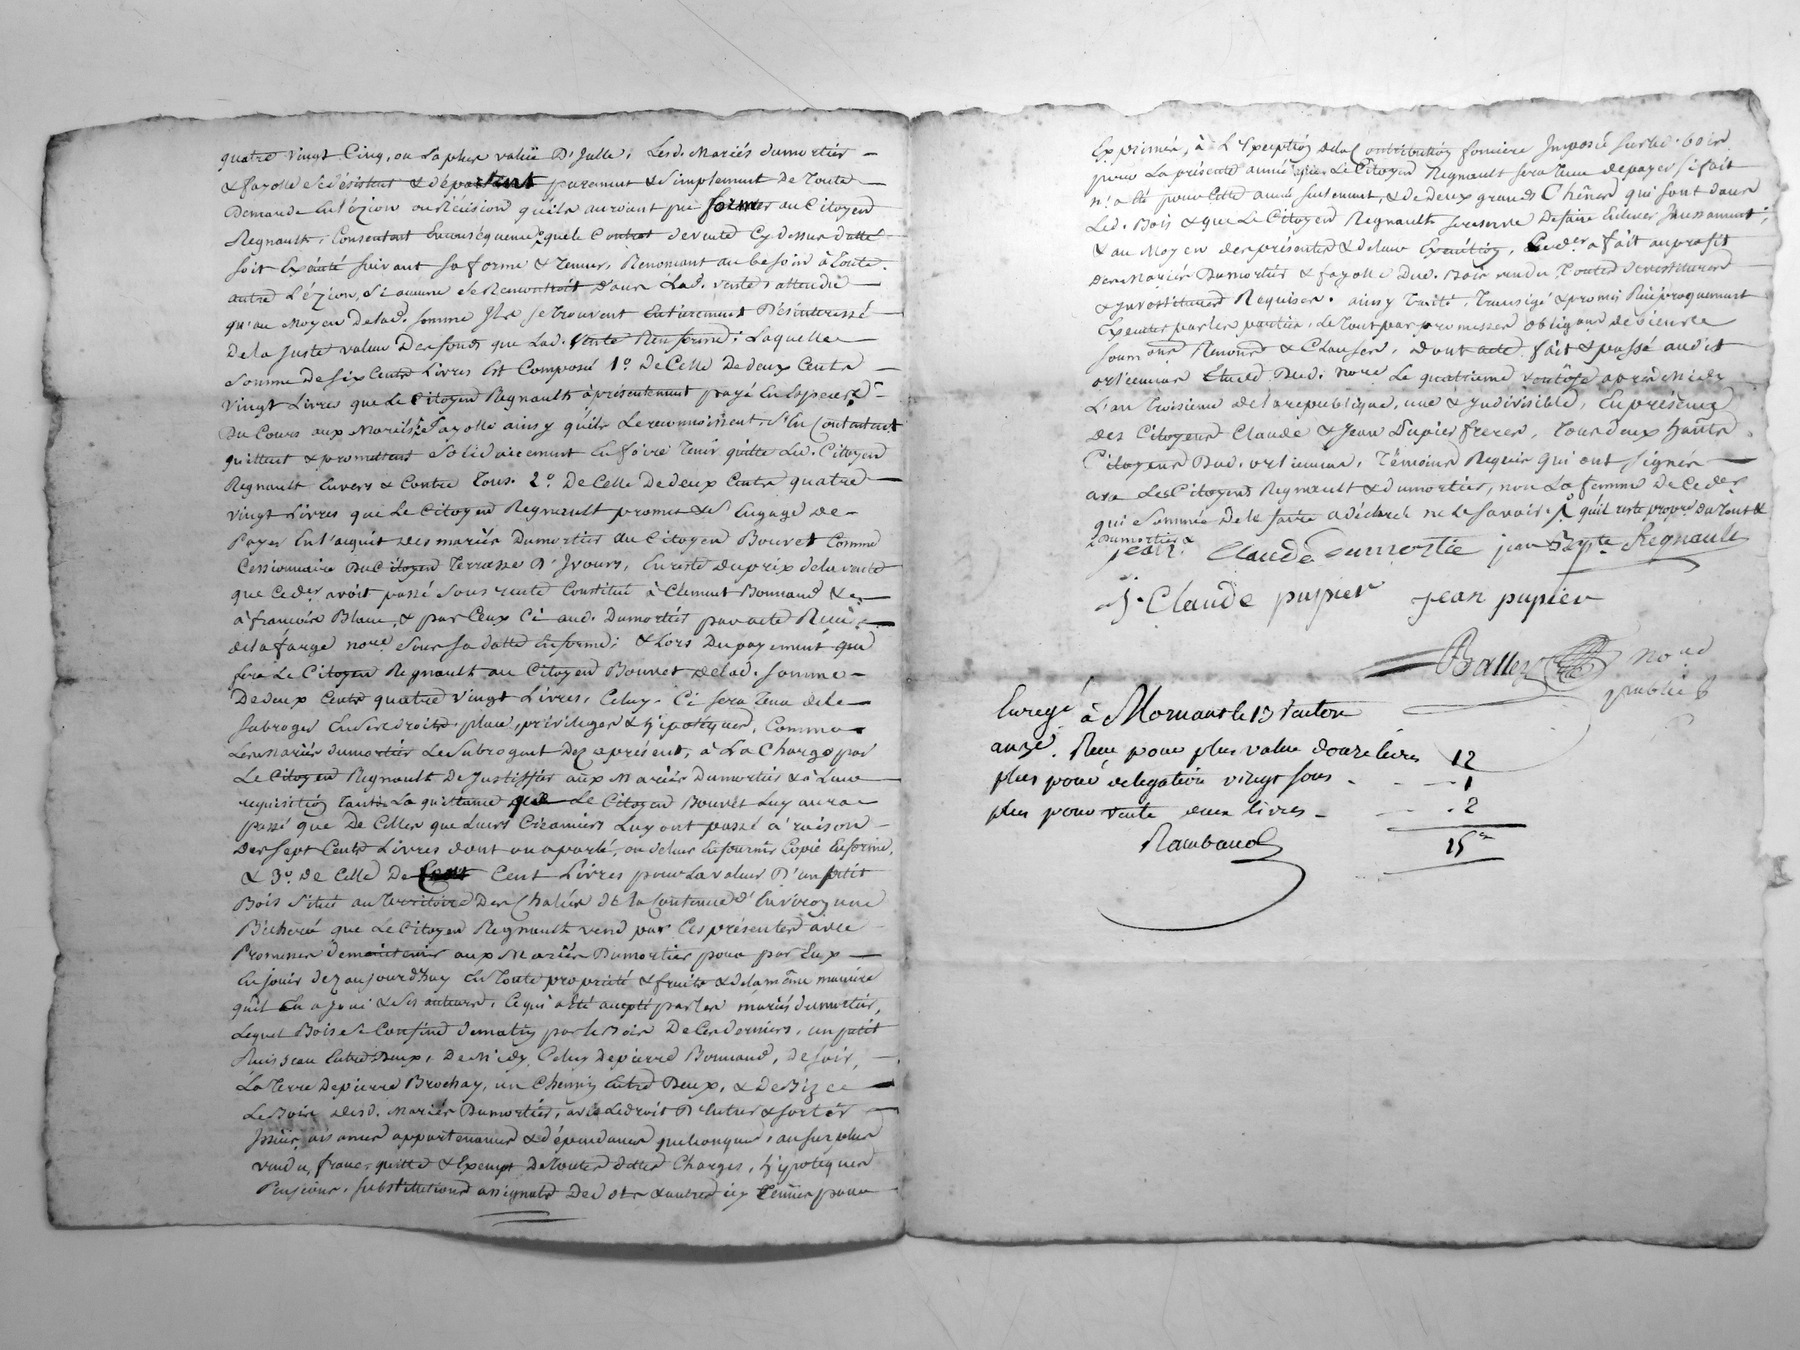 quatre vingt Cinq, ou la plus valüe D'Julle; Lesd. Mariés dumortier
& fayolle se désistent & départent purement & simplement De toute
Demande en lézion ou récision qu'ils auroient pu former au Citoyen
Regnault, Consentant En conséquence que le Contrat de vente Cy dessus datté
soit Exécuté suivant sa forme & teneur, Renoncant au besoin à toute
autre Lézion, si aucune se Rencontroit dans Lad. vente, attendu
qu'au Moyen de lad. somme Ils se trouvent Entierement Désintéressé
De la Juste valeur Des fonds que Lad. vente Renferme; Laquelle
somme De six Cents Livres Est Composé 1°. De Celle De deux Cents
vingt Livres que Le Citoyen Regnault à présentement payé En Especes
Du Cours aux Mariés fayolle ainsy qu'ils Le reconnoissent, s'En Contentent
quittent & promettent solidairement En faire tenir quitte Led. Citoyen
Regnault Envers & Contre Tous. 2°. De Celle De deux Cents quatre
vingt Livres que Le Citoyen Regnault promet & s'Engage De
Payer En l'acquit des mariés Dumortier au Citoyen Bouvet Comme
Cessionnaire Du Citoyen Terrasse D'Yvours, En reste du prix de la vente
que Ceder. avoit passé sous rente Constitué à Clement Bonnand &
à francoise Blanc, & par Ceux Ci aud. Dumortier par acte Reçu
delafarge nore. sous sa datte En forme; & Lors Du payement que
fera Le Citoyen Regnault au Citoyen Bouvet de lad. somme
De deux Cents quatre vingt Livres, Celuy-Ci sera Tenu de le
subroger En ses droits, place, privileges & hipotèques, Comme
Les mariés dumortier Le subrogent Dez aprésent, à La Charge par
Le Citoyen Regnault De Justiffier aux Mariés Dumortier & à Leur
requisition tant De La quittance que Le Citoyen Bouvet Luy aura
passé que De Celles que Leurs Créanciers Luy ont passé à raison
Des sept Cents Livres dont on a parlé, ou de leur En fournir Copie En forme,
& 3°. de Celle De Cent Livres pour La valeur D'un petit
Bois situé au Territoire Des Chalier de la Contenue d'Environ une
Bicherée que Le Citoyen Regnault vend par Ces présentes avec
Promesse de maintenir aux Mariés Dumortier pour par Eux
En jouir dez aujourd'huy En Toute propriété & fruits & de la même maniere
qu'il En a joui & ses auteurs, Ce qui a été accepté par les mariés dumortier,
Lequel Bois se Confine de matin par le Bois De Ces derniers, un petit
Ruisseau Entre Deux, De Midy Celuy de pierre Bonnand, de soir,
La Terre de pierre Brochay, un Chemin Entre Deux, & De Bize
Le Bois desd. Mariés Dumortier, avec Le droit D'Entrer & sortir
Issües, aisances appartenances & dépendances quelconques, au surplus
vendu, franc, quitte & Exempt De toutes dettes Charges, hypoteques
Pensions, substitutions assignats De dots & autres icy Tenües pour
Exprimée, à L'Exception de la Contribution fonciere Imposée sur led. bois
pour La présente année que Le Citoyen Regnault sera Tenu de payer si fait
n'a été pour Cette année seulement, & de deux grands Chênes qui sont dans
Led. Bois & que Le Citoyen Regnault se reserve De faire Enlever Incessamment;
& au Moyen des présentes & de leur Exécution, Ceder. a fait au profit
des Mariés Dumortier & fayolle Dud. Bois vendu Toutes devestitures
& Investitures Requises. ainsy Traité, Transigé & promis Réciproquement
Executer par les parties, Le Tout par promesses obligations de biens
soumissions Renonciations & Clauses, dont acte fait & passé audit
orlienas Etude Dud. nore Le quatrieme ventôse après Midy
L'an troisieme de la republique, une & Indivisible, En présence
des Citoyens Claude & Jean Pupier freres, Tous deux hants
Citoyens Dud. orlienas, Témoins Requis qui ont signés
avec Les Citoyens Regnault & dumortier, non La femme De Ceder
qui sommée De le faire a déclaré ne Le savoir. qu'il reste propre du Tout &
Dumortier &
jean Claude dumortie jean Bapte Regnault
J. Claude pupier jean pupier
Balley nore
public
Enregé à Mornant le 13 Ventose
an 3e. Reçu pour plus value douze livres 12
plus pour délégation vingt sous - 1
plus pour vente deux livres - 2
15
Rambaud